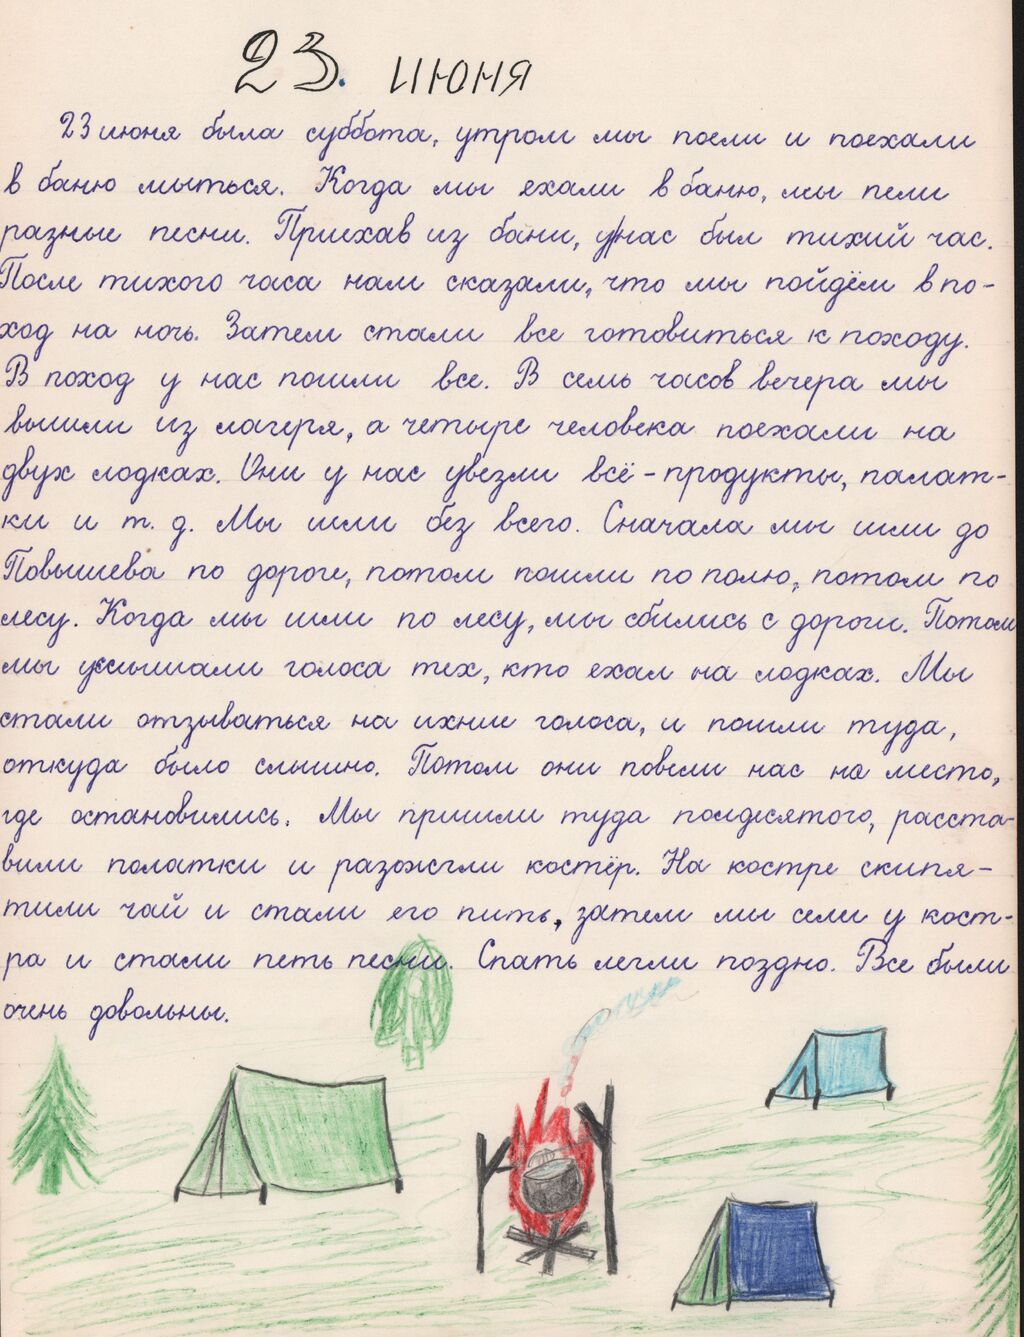 23. июня
23 июня была суббота, утром мы поели и поехали
в баню мыться. Когда мы ехали в баню, мы пели
разные песни. Приехав из бани, у нас был тихий час.
После тихого часа нам сказали, что мы пойдём в по-
ход на ночь. Затем стали все готовиться к походу.
В поход у нас пошли все. В семь часов вечера мы
вышли из лагеря, а четыре человека поехали на
двух лодках. Они у нас увезли всё - продукты, палат-
ки и т. д. Мы шли без всего. Сначала мы шли до
Повышева по дороге, потом пошли по полю, потом по
лесу. Когда мы шли по лесу, мы сбились с дороги. Потом
мы услышали голоса тех, кто ехал на лодках. Мы
стали отзываться на ихние голоса, и пошли туда,
откуда было слышно. Потом они повели нас на место,
где остановились. Мы пришли туда полдесятого, расста-
вили полатки и разожгли костёр. На костре скипя-
тили чай и стали его пить, затем мы сели у кост-
ра и стали петь песни. Спать легли поздно. Все были
очень довольны.